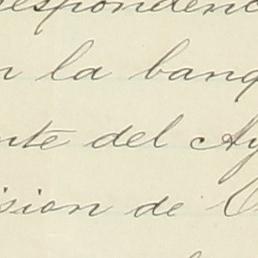 espondenc
n la banq
nte del Ay
ision de